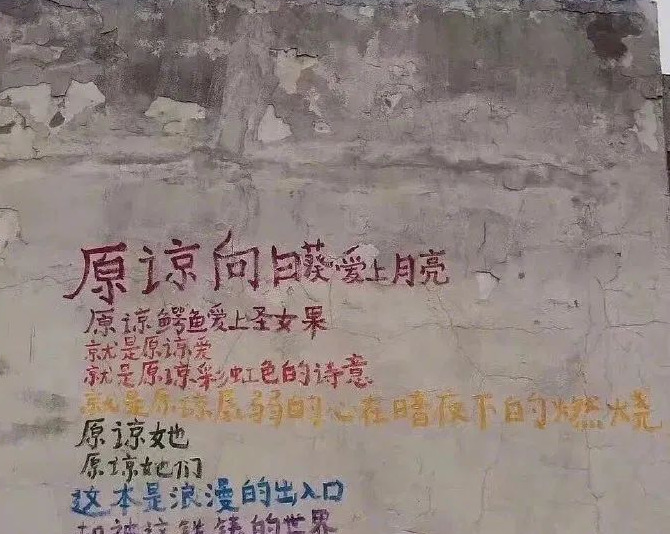 原谅向日葵爱上月亮
原谅鳄鱼爱上圣女果
就是原谅爱
就是原谅彩虹色的诗意
就是原谅孱弱的心在暗夜下的燃烧
原谅她
原谅她们
这本是浪漫的出入口
却被这铁锈的世界